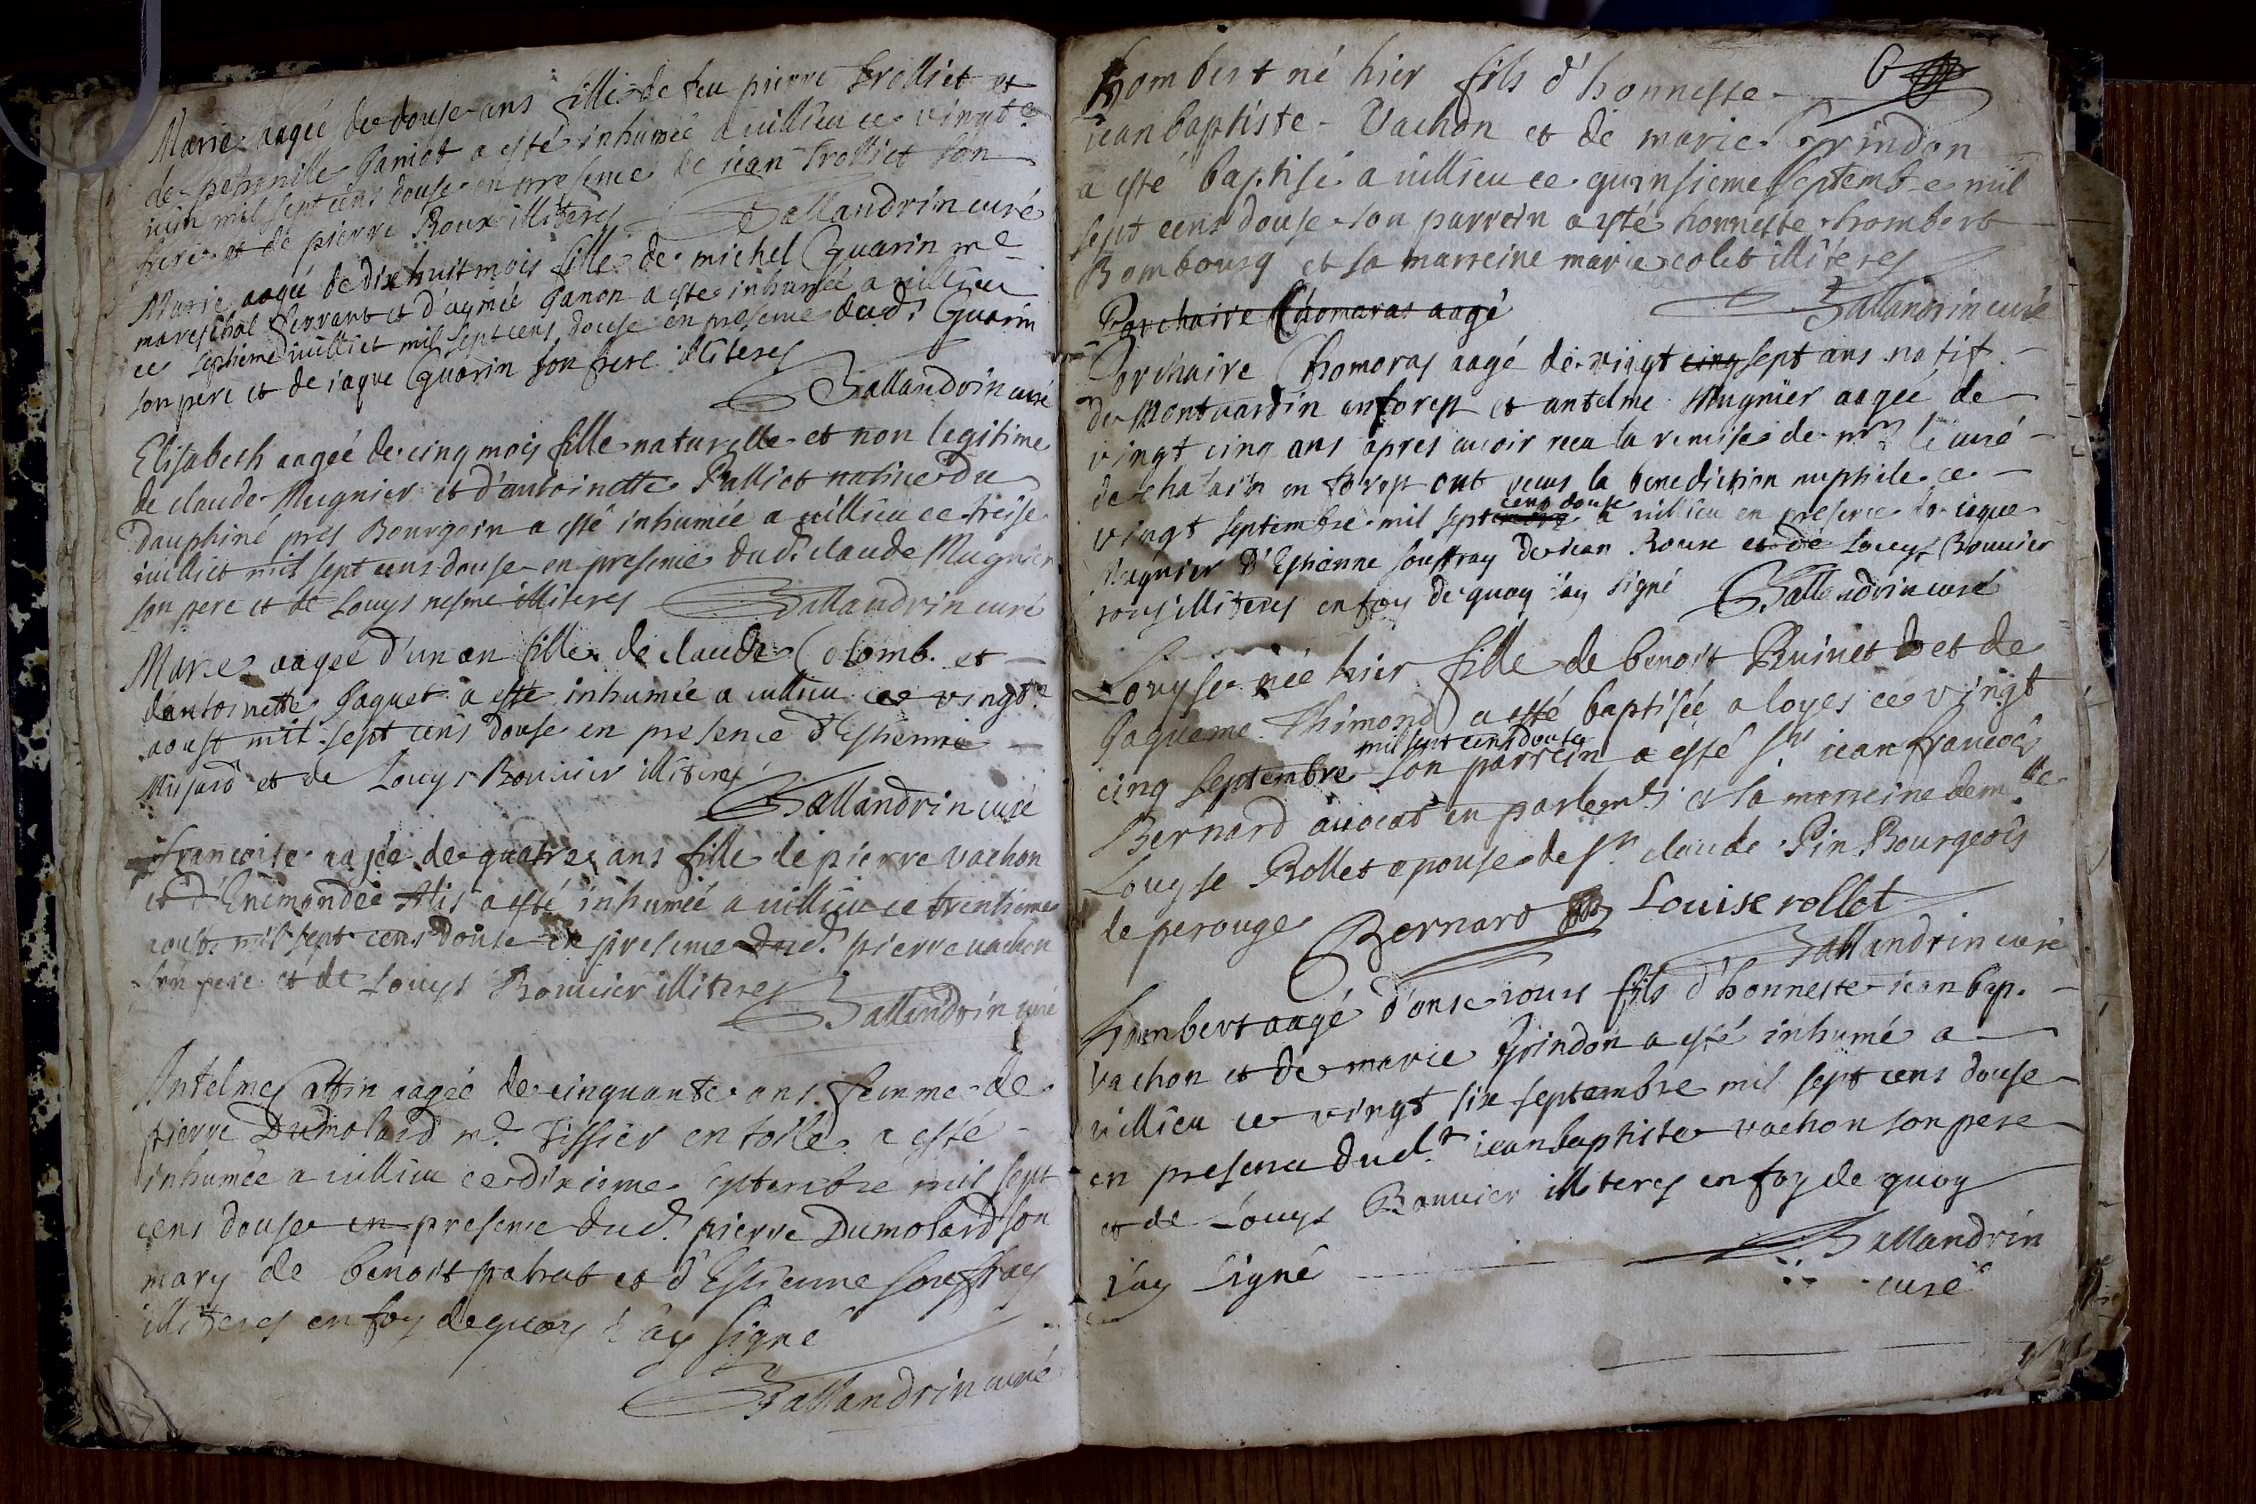 Marie aageé de douse ans fille de feu pierre Trolliet et
de petronille Janiot a esté inhumée a villieu ce vingt
iuin mil sept cens douse en presence de iean Trolliet son
frere et de pierre Roux illiteres Ballandrin curé
Marie aageé de dix huit mois fille de michel Guarin me
mareschal ferrant et d'aymée Janon a esté inhumée a villieu
ce septieme iuilliet mil sept cens douse en presence dud. Guarin
son pere et de iaque Guarin son frere illiteres
Ballandrin curé
Elisabeth aageé de cinq mois fille naturelle et non legitime
de claude Mugnier et d'antoinette Julliet native du
dauphiné pres Bourgoin a esté inhumée a villieu ce treise
iuilliet mil sept cens douse en presence dud. claude Mugnier
son pere et de Louys nesme illiteres Ballandrin curé
Marie aagee d'un an fille de claude Colomb et
d'antoinette Jaquet a esté inhumée a villieu ce vingt
aoust mil sept cens douse en presence d'Estienne
Musard et de Louys Bouvier illiteres
Ballandrin curé
francoise aagée de quatre ans fille de pierre vachon
et d'Enemondée Alis a esté inhumée a villieu ce trentieme
aoust mil sept cens douse en presence dud. pierre vachon
son pere et de Louys Bouvier illiteres
Ballandrin curé
Antelme Attin aagée de cinquante ans femme de
pierre Dumolard me. Tissier en toile a esté
inhumée a villieu ce dixieme septembre mil sept
cens douse en presence dud. pierre Dumolard son
mary de benoit patrat et d'Estienne souffray
illiteres en foy de quoy i'ay signé
Ballandrin curé
6
hombert né hier fils d'honneste
iean baptiste Vachon et de marie Grindon
a esté baptisé a villieu ce quinsieme septembre mil
sept cens douse son parrein a esté honneste hombert
Bombourg et sa marreine marie colet illiteres
Ballandrin curé
Porchaire Chomaras aagé
Porchaire Chomaras aagé de vingt cinq sept ans natif
de Montvardin en forest et antelme Mugnier aagée de
vingt cinq ans apres avoir receu la remise de mr le curé
de chatain en forest ont receus la benediction nuptiale ce
cens douse
vingt septembre mil sept a villieu en presence de iaque
Mugnier d'Estienne souffray de iean Roux et de Louys Bouvier
tous illiteres en foy de quoy i'ay signé Ballandrin curé
Louyse née hier fille de benoit Ruinet et de
Jaqueme Thimond a esté baptisée a loyes ce vingt
mil sept cens douse
cinq septembre son parrein a esté sr iean francois
Bernard avocat en parlemt et sa marreine demlle
Louyse Rollet epouse de sr claude Pin Bourgeois
de perouge Bernard Louise rollet
Ballandrin curé
hombert aagé d'onse iours fils d'honneste iean bap.
vachon et de marie Grindon a esté inhumé a
villieu ce vingt six septembre mil sept cens douse
en presence dud.t iean baptiste vachon son pere
et de Louys Bouvier illiteres en foy de quoy
i'ay signé Ballandrin
curé